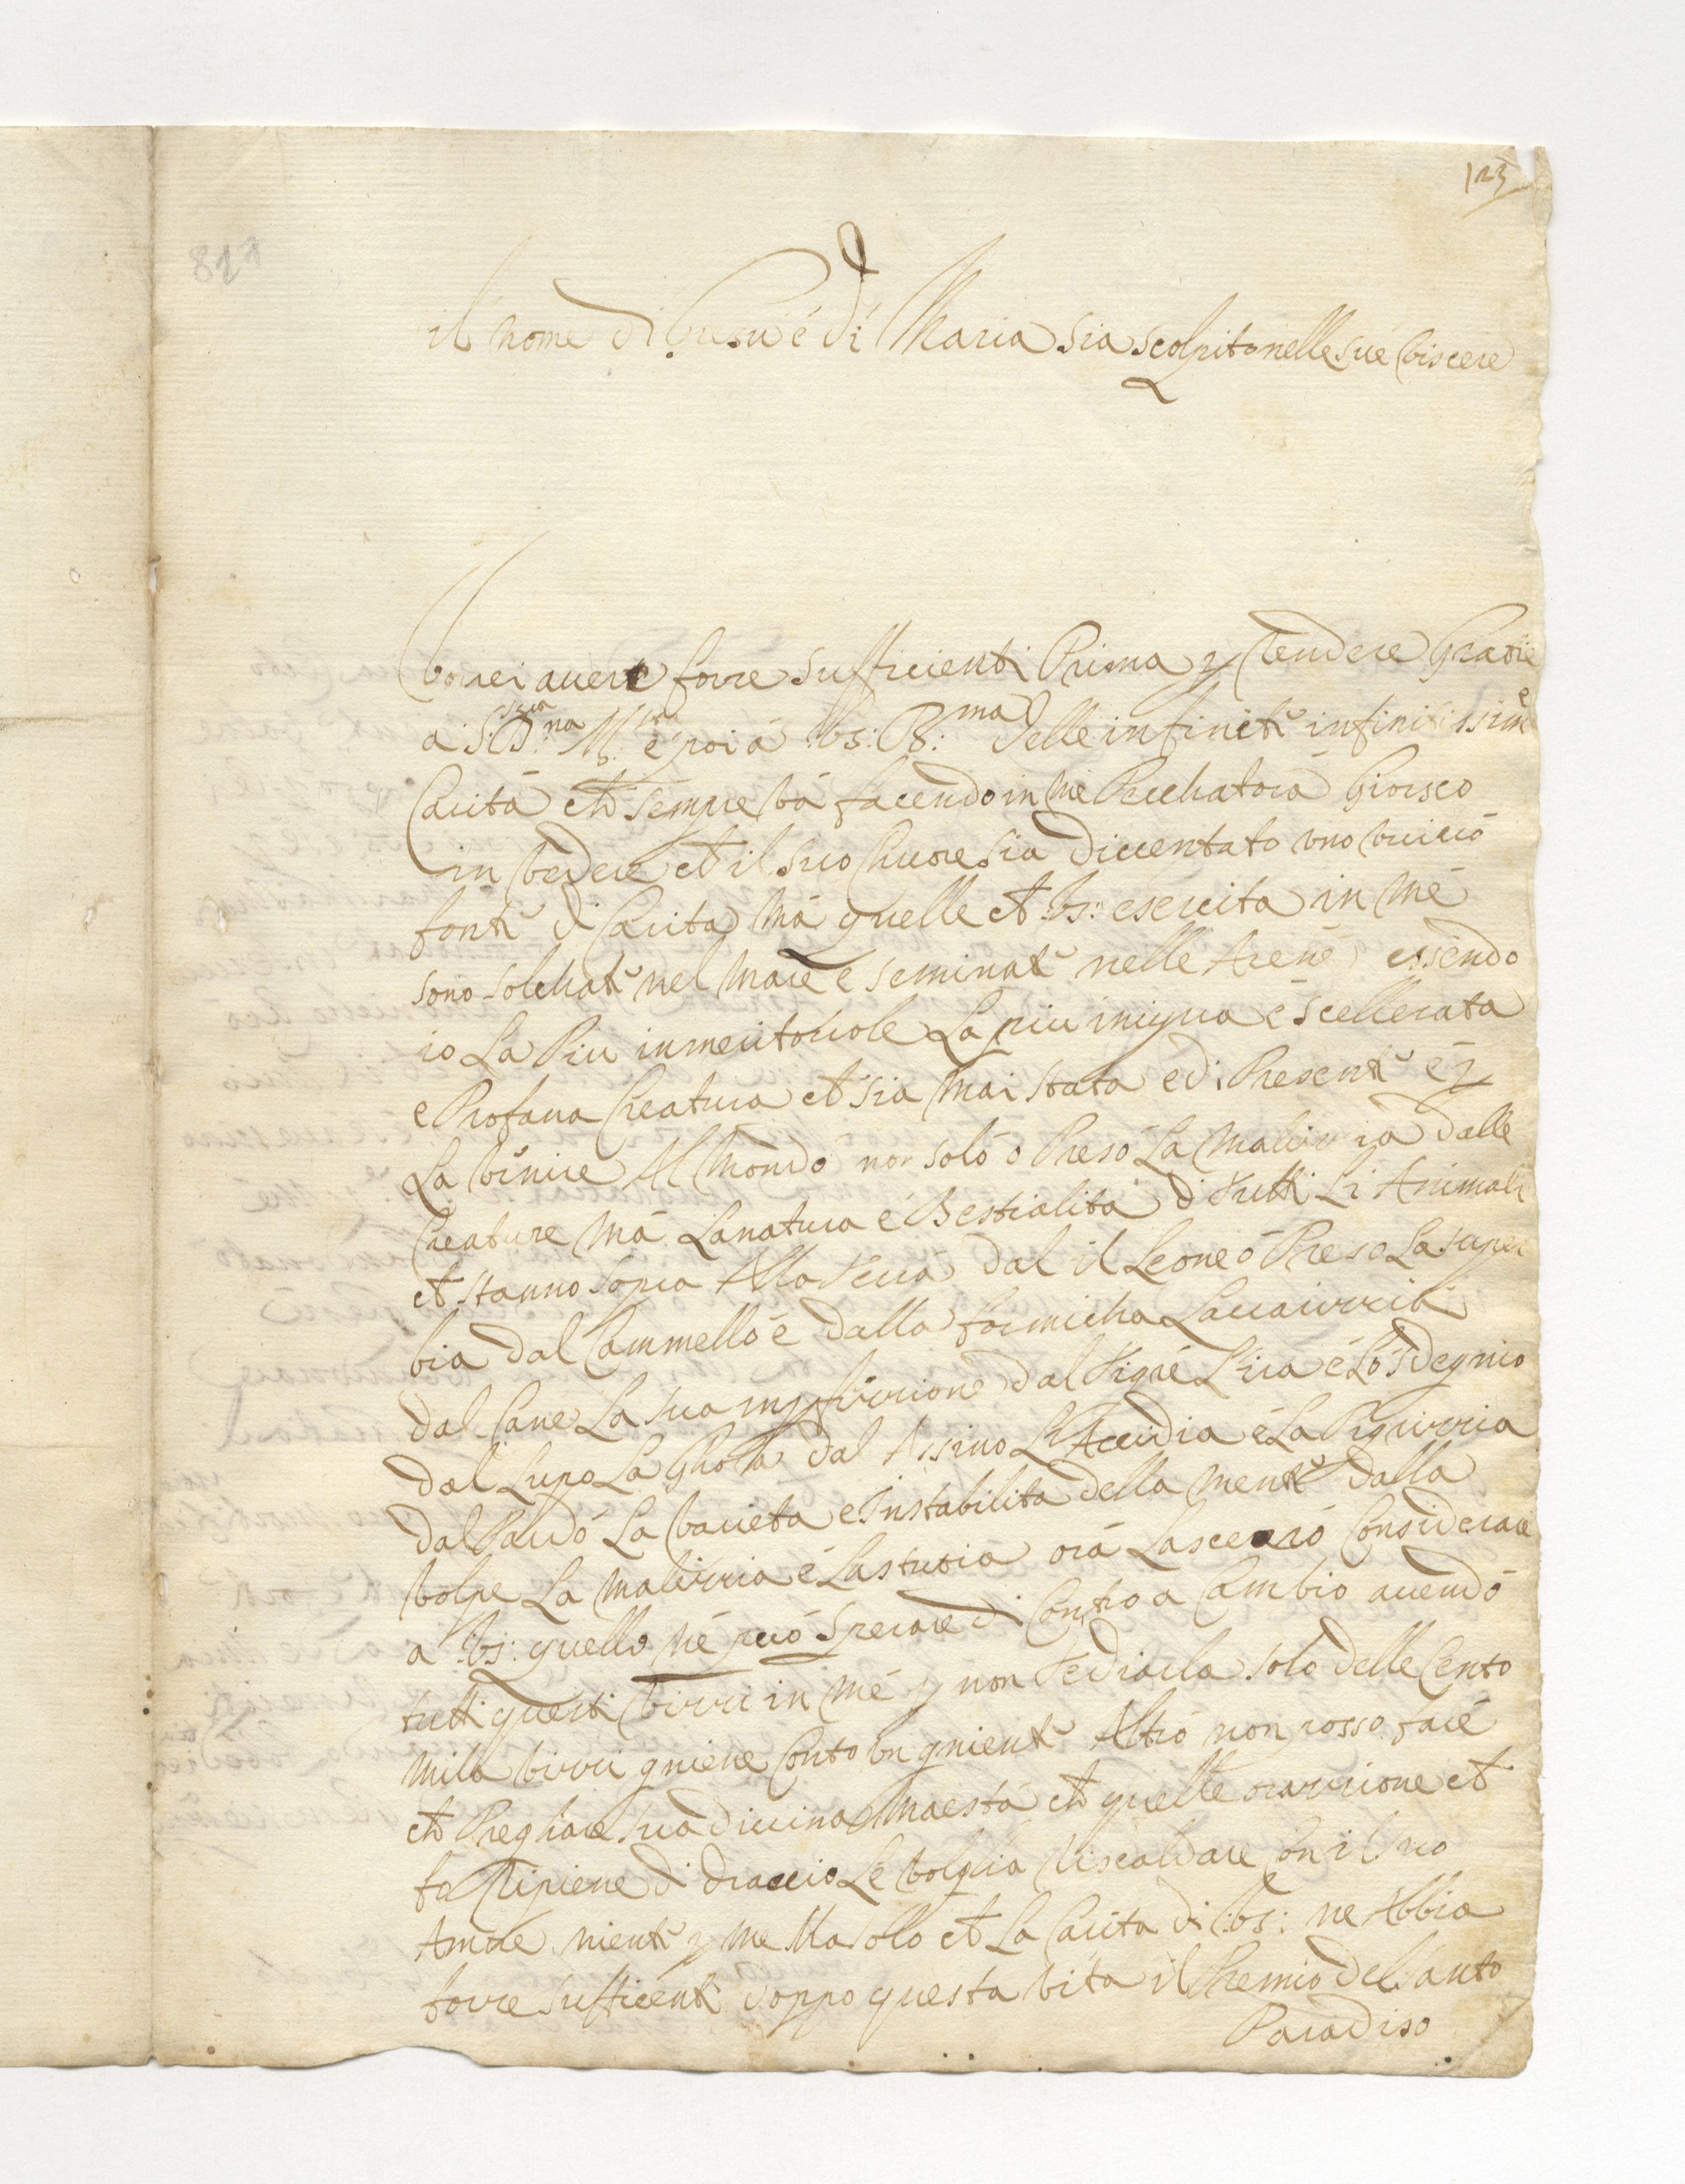 123
817
il nome di Giesu é di Maria sia scolpito nelle sué viscere
vorrei avere forze sufficienti Prima p rendere Gratie
a S: D: na M: é poi á vs: R: ma delle infinite infinitissime
Caritá che sempre vá facendo in me Pecchatora Gioisco
in vedere che il suo Chuore sia diventato uno vivió
fonte di Carita má quelle che vs: esercita in mé
sono solchate nel mare é seminate nelle Arene essendo
io La Piu inmeritovole La piu iniqua é scellerata
e Profana Creatura che sia mai stata e di Presente é p
La venire Al mondó non soló ó Presó La malizzia dalle
Creature má La natura é Bestialitá di tutti Li Animali
che stanno sopra Alla terrá dal il Leone ó Preso La super
bia dal Cammelló é dalla formicha Lavarizzia
dal Cane La sua mormorazzione dal tigré L ira é Ló sdegnio
dal Lupo La Ghola dal Assino L Accidia é La Pigrizzia
dal Pardó La varieta e instabilita della mente dalla
volpe La malizzia é Lastutia orá Lascerró Considerare
a vs: quello mé puó sperare di Contro a Cambio avendó
tutti questi vizzi in mé p non tediarla solo delle Cento
mila vizzi gniene Conto un gniente Altró non posso faré
che Preghare sua divina Maestá che quelle orazzione che
fo Ripiene di diaccio Le voglia Riscaldare Con il suo
Amore niente p me Ma solo che La Carita di vs: ne Abbia
forze sufficenti doppo questa vita il Premio del santo
Paradiso